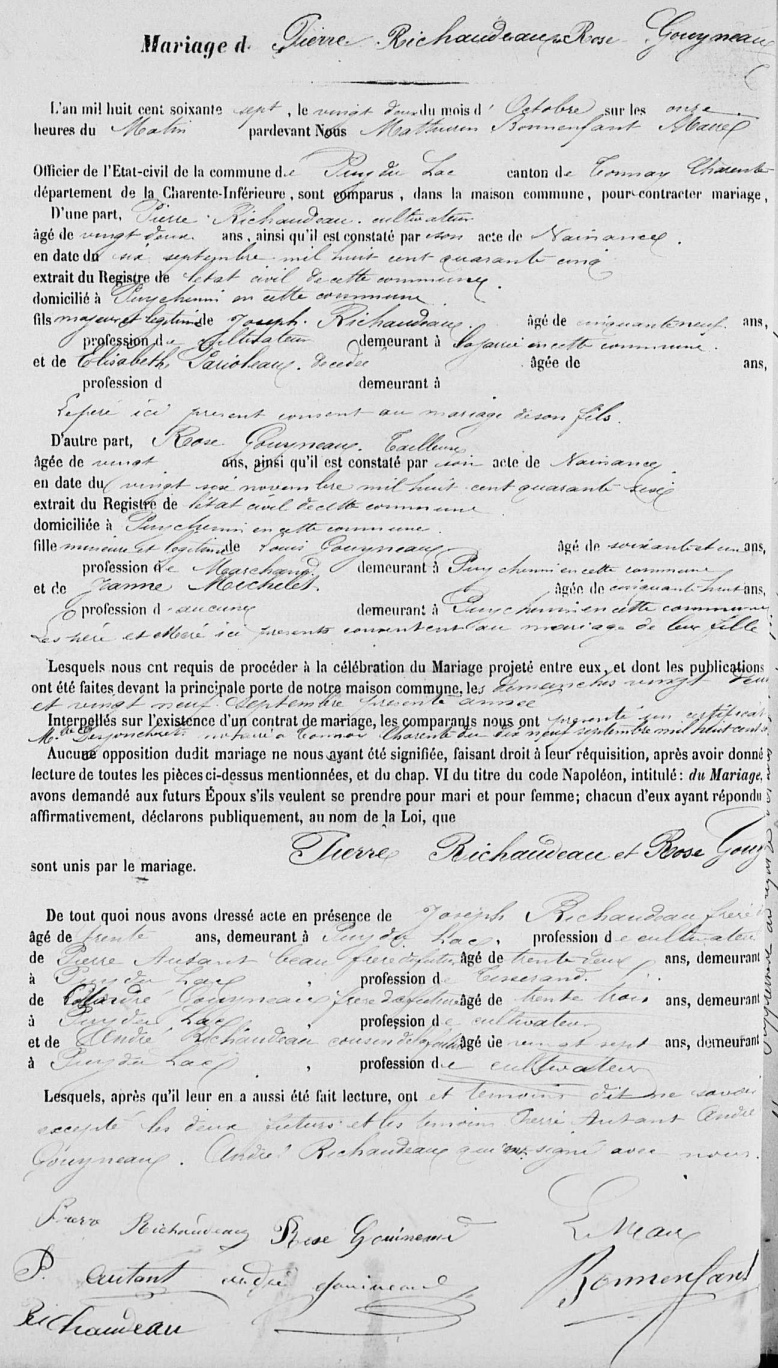 Mariage d. Pierre Richaudeau & Rose Gouyneau
L'an mil huit cent soixante sept, le vingt deux du mois d' Octobre sur les onze
heures du Matin pardevant Nous Mathurin Bonnenfant Maire
Officier de l'Etat-civil de la commune de Puy du Lac canton de Tonnay Charente
département de la Charente-Inférieure, sont comparus, dans la maison commune, pour contracter mariage,
D'une part, Pierre Richaudeau cultivateur
âgé de vingt deux ans, ainsi qu'il est constaté par son acte de Naissance
en date du six septembre mil huit cent quarante cinq
extrait du Registre de l'état civil de cette commune
domicilié à Puychenin en cette commune
fils majeur et légitime de Joseph Richaudeau âgé de cinquante neuf ans,
profession de cultivateur demeurant à en cette commune.
et de Elisabeth décédée âgée de ans,
profession d demeurant à
Le père ici présent consent au mariage de son fils.
D'autre part, Rose Gouyneau. Tailleuse
âgée de vingt ans, ainsi qu'il est constaté par son acte de Naissance
en date du vingt six novembre mil huit cent quarante six
extrait du Registre de l'état civil de cette commune
domiciliée à Puychenin en cette commune.
fille mineure et légitime de Louis Gouyneau âgé de soixante et un ans,
profession de Marchand demeurant à Puychenin en cette commune
et de Jeanne Michelet. âgée de cinquante huit ans,
profession d'aucune demeurant à Puychenin en cette commune
Les père et mère ici présents consentent au mariage de leur fille
Lesquels nous ont requis de procéder à la célébration du Mariage projeté entre eux, et dont les publications
ont été faites devant la principale porte de notre maison commune, les dimanches vingt deux
et vingt neuf Septembre présente année
Interpellés sur l'existence d'un contrat de mariage, les comparants nous ont présenté un certificat
notaire à Tonnay Charente du dix neuf septembre mil huit cent
Aucune opposition dudit mariage ne nous ayant été signifiée, faisant droit à leur réquisition, après avoir donné
lecture de toutes les pièces ci-dessus mentionnées, et du chap. VI du titre du code Napoléon, intitulé : du Mariage,
avons demandé aux futurs Époux s'ils veulent se prendre pour mari et pour femme; chacun d'eux ayant répondu
affirmativement, déclarons publiquement, au nom de la Loi, que
Pierre Richaudeau et Rose Gouy
sont unis par le mariage.
De tout quoi nous avons dressé acte en présence de Joseph Richaudeau frère
âgé de trente ans, demeurant à Puy du Lac, profession de cultivateur
de Pierre Autant beau frère du futur âgé de trente deux ans, demeurant
à Puy du Lac, profession de Tisserand.
de André Gouyneau frère de la future âgé de trente trois ans, demeurant
à Puy du Lac, profession de cultivateur
et de André Richaudeau cousin âgé de vingt sept ans, demeurant
à Puy du Lac, profession de cultivateur
Lesquels, après qu'il leur en a aussi été fait lecture, ont et témoins dit ne savoir
excepté les deux futurs et les témoins Pierre Autant André
Gouyneau. André Richaudeau qui ont signé avec nous.
Pierre Richaudeau Rose Gouineaud Le Maire
P. autant andré gouineaud Bonnenfant
Richaudeau